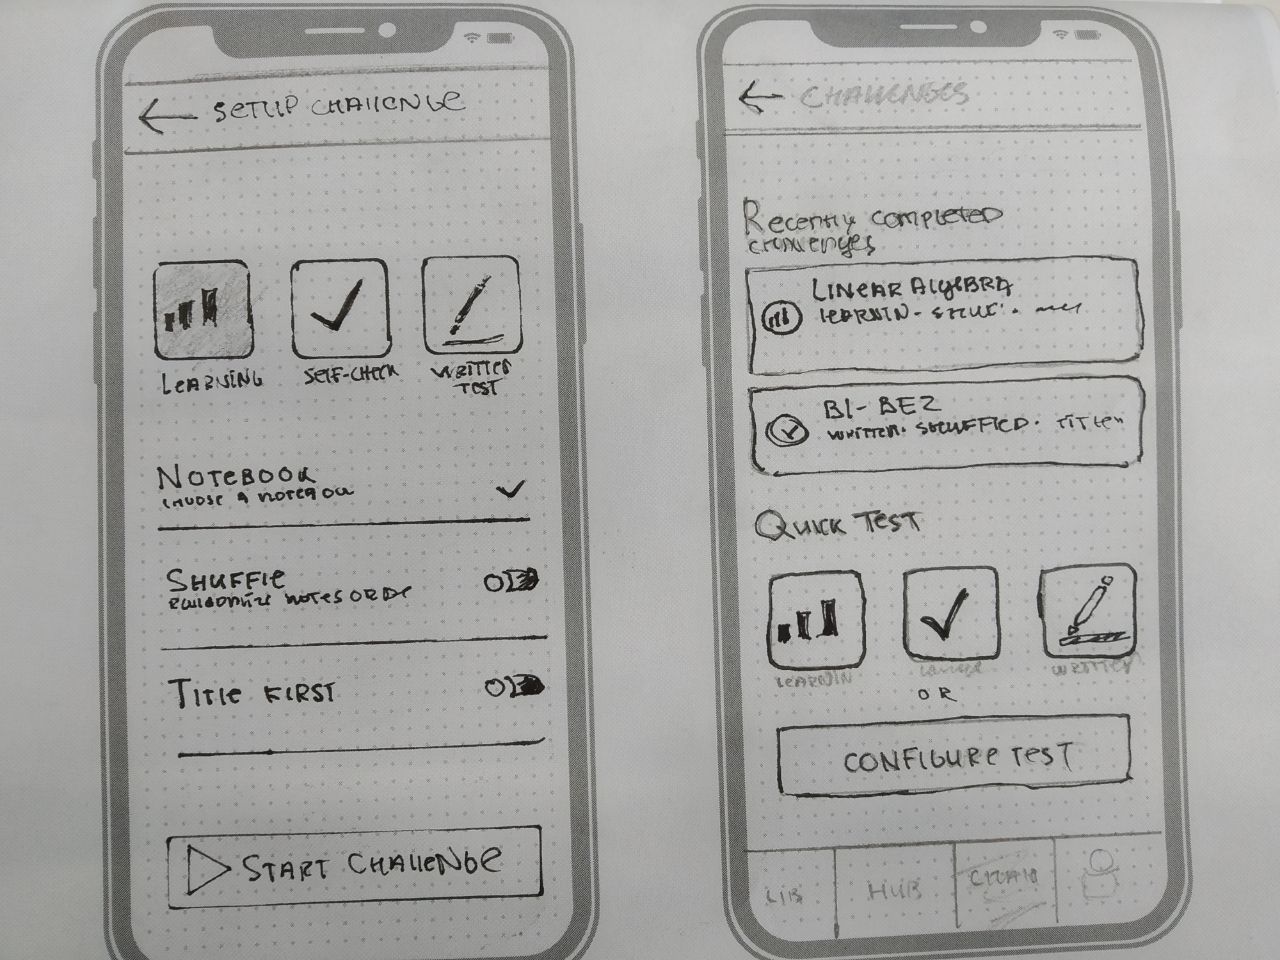 SETUP CHALLENGE
LEARNING
SELF-CHECK
WRITTEN
TEST
NOTEBOOK
CHOOSE A
SHUFFLE
NOTES
TITLE FIRST
START CHALLENGE
CHALLENGES
Recently completed
challenges
LINEAR ALGEBRA
LEARNIN
BI-BE2
WRITTEN· SHUFFLED·
QUICK TEST
LEARNIN
WRITTEN
OR
CONFIGURE TEST
LIB
HUB